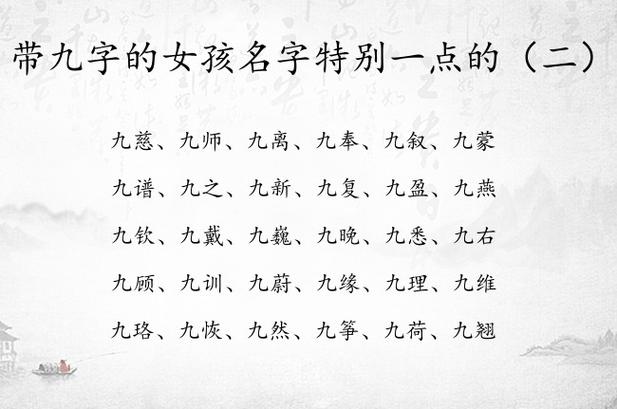 带九字的女孩名字特别一点的（二）
九慈、九师、九离、九奉、九叙、九蒙
九谱、九之、九新、九复、九盈、九燕
九钦、九戴、九巍、九晚、九悉、九右
九顾、九训、九蔚、九缘、九理、九维
九珞、九恢、九然、九筝、九荷、九翘